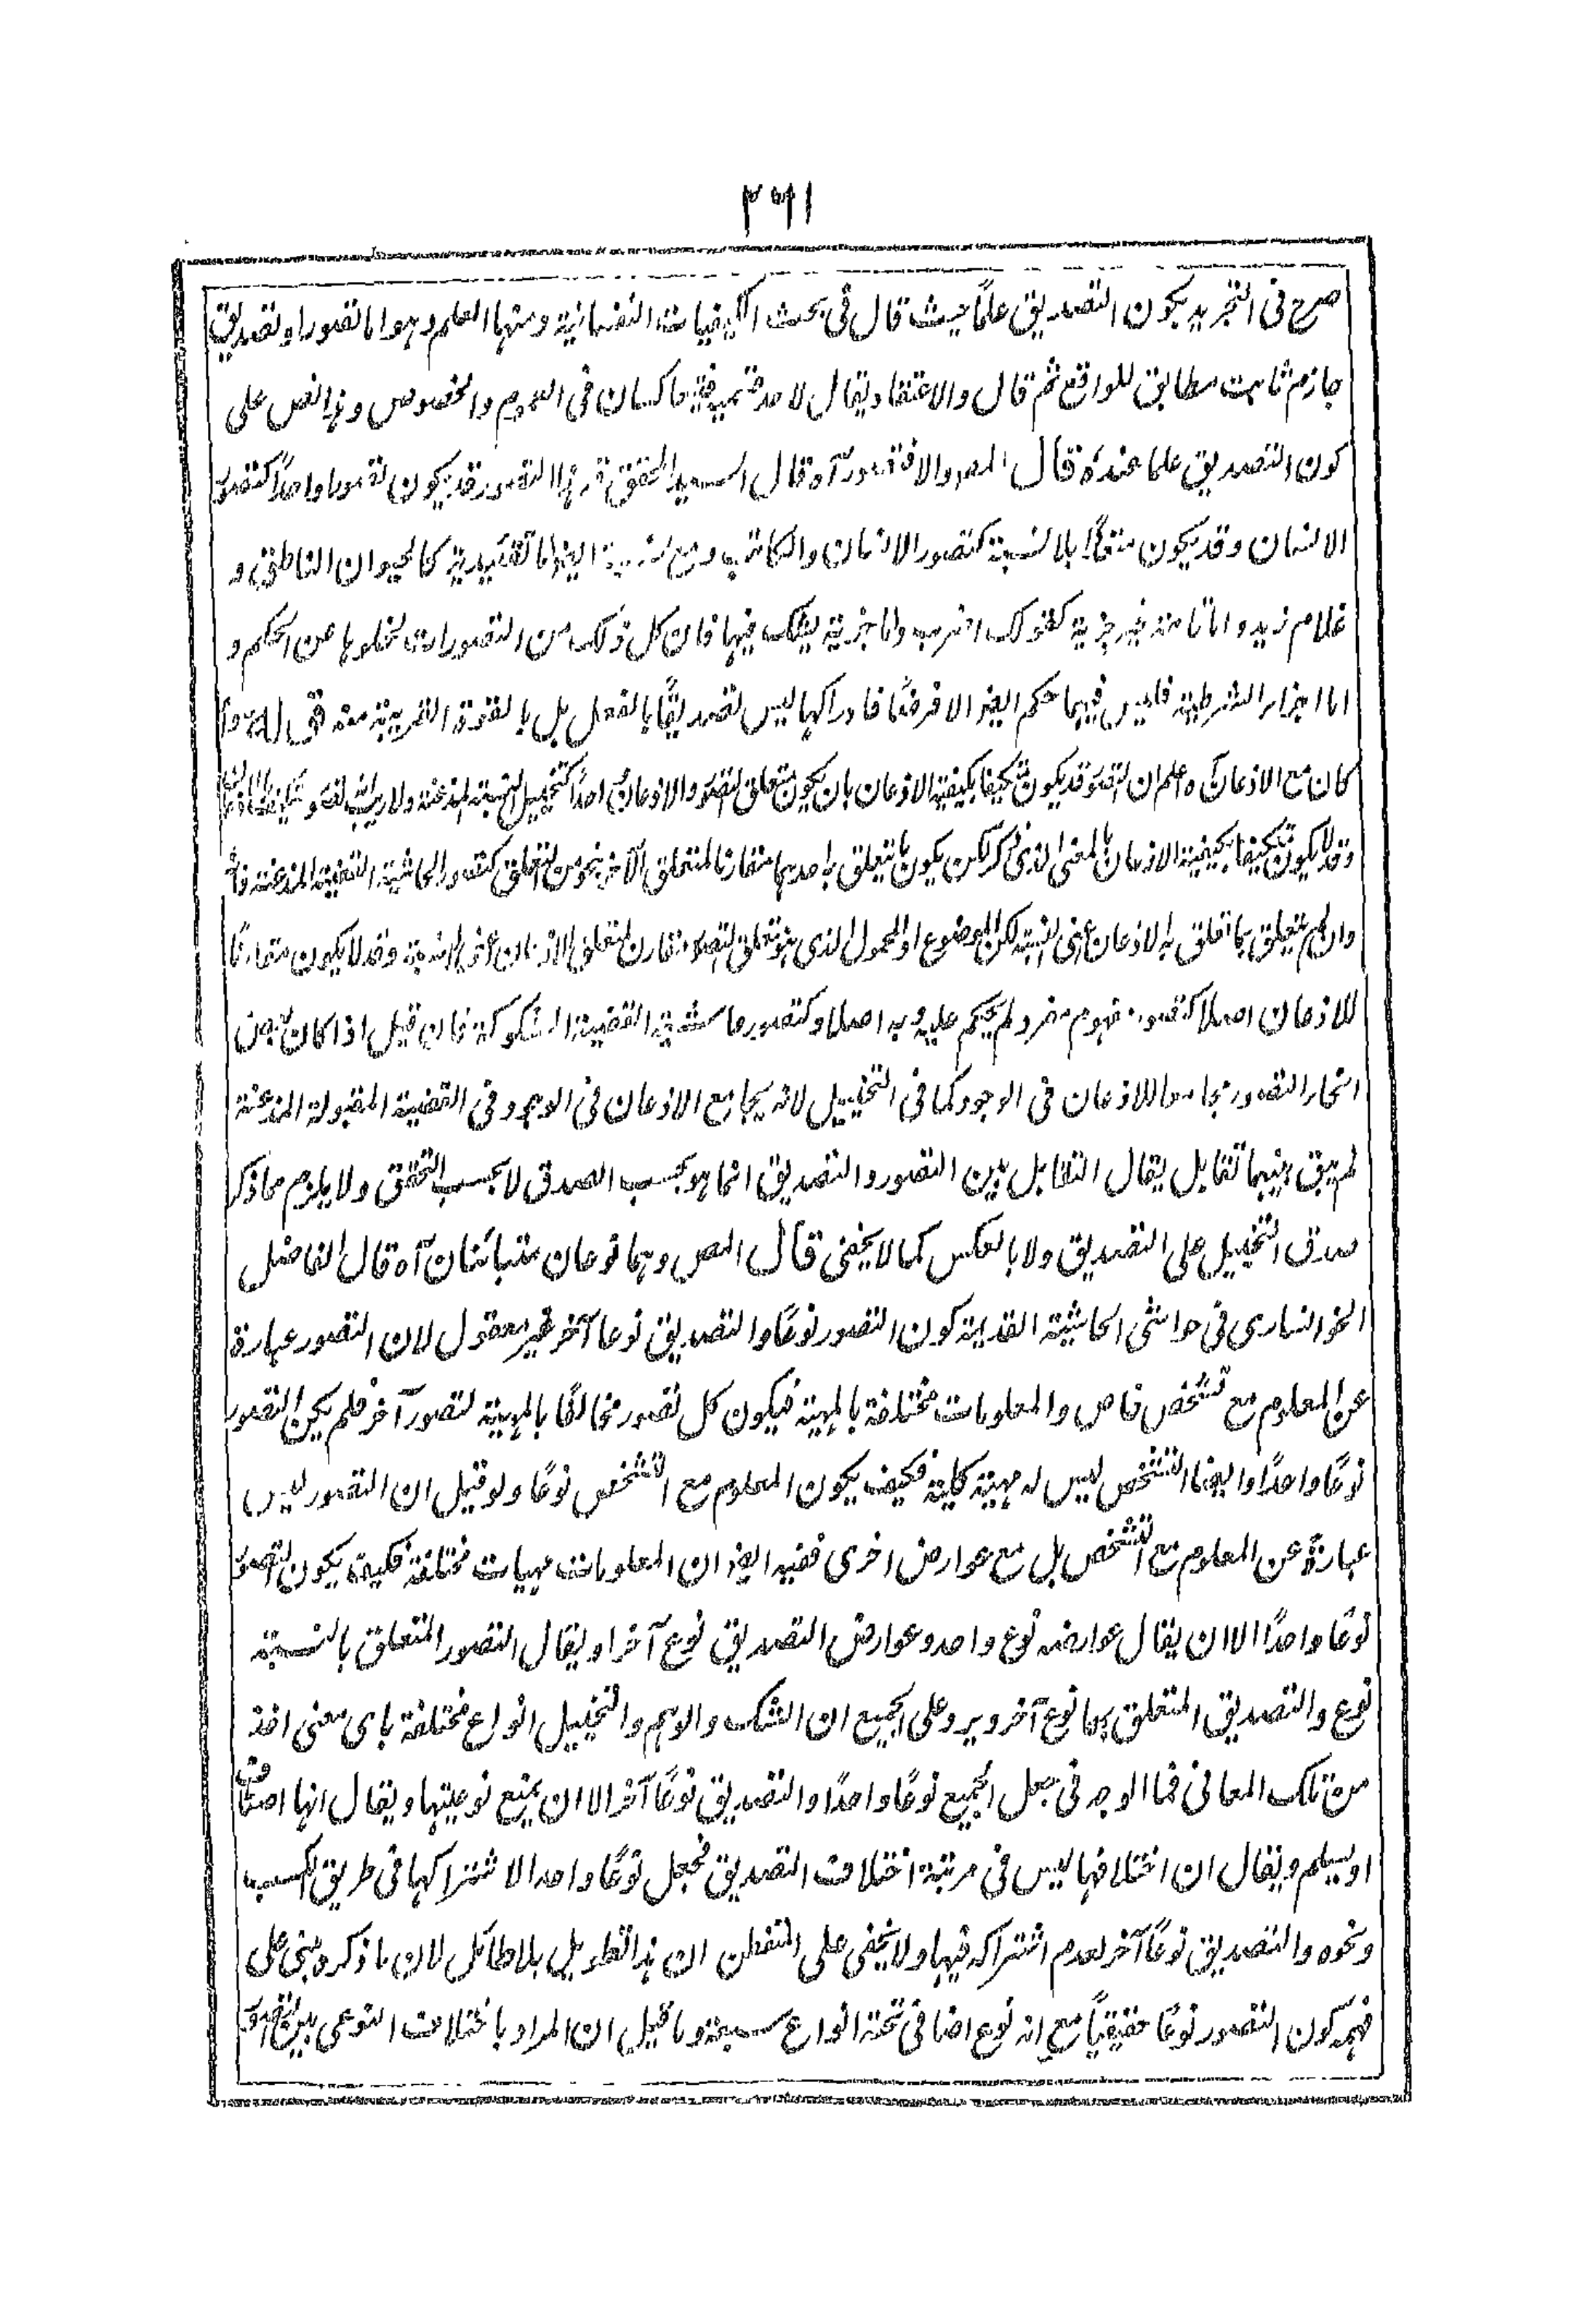 ٣٦١
صرح فى التجريد بكون التصديق علمًا حيث قال فى بحث الكيفيات النفسانية ومنها العلم وهو اما تصور او تصديق
جازم ثابت مطابق للواقع ثم قال والاعتقاد يقال لاحد قسميه فيتعاكسان فى العموم والخصوص وهذا نص على
كون التصديق علما عنده قال المص والا فتصور آه قال السيد المحقق التصور قد يكون تصورا واحدًا كتصور
الانسان وقد يكون متعددًا بلا نسبة كتصور الانسان والكاتب ومع نسبة ايض اما تقييدية كالحيوان الناطق و
غلام زيد واما تامة غير خبرية كقولك اضرب واما خبرية يشك فيها فان كل ذلك من التصورات لخلوها عن الحكم و
اما اجزاء الشرطية فليس فيها حكم ايض الا فرضًا فادراكها ليس تصديقًا بالفعل بل بالقوة القريبة منه قال
كان مع الاذعان آه اعلم ان التصور قد يكون متكيفا بكيفية الاذعان بان يكون متعلق التصور والاذعان واحدًا كتخييل النسبة المذعنة ولا ريب
وقد لا يكون متكيفا بكيفية الاذعان بالمعنى الذى ذكر لكن يكون ما يتعلق به احدهما مقارنا لمتعلق الآخر بنحو من التعلق كتصور الحاشية القضية المذعنة فانه
وان لم يتعلق بما تعلق به الاذعان اعنى النسبة لكن الموضوع او المحمول الذى هو متعلق التصور مقارن لمتعلق الاذعان اعنى النسبة وقد لا يكون مقارنًا
للاذعان اصلا كتصور مفهوم مفرد لم يحكم عليه وبه اصلا وكتصور حاشية القضية المشكوكة فان قيل اذا كان بعض
انحاء التصور مجامعا للاذعان فى الوجود كما فى التخييل لانه يجامع الاذعان فى الوجود فى القضية المقبولة المذعنة
لم يبق بينهما تقابل يقال التقابل بين التصور والتصديق انما هو بحسب الصدق لا بحسب التحقق ولا يلزم مما ذكر
صدق التخييل على التصديق ولا بالعكس كما لا يخفى قال المص وهما نوعان متبائنان آه قال الفاضل
الخوانسارى فى حواشى الحاشية القديمة كون التصور نوعًا والتصديق نوعا آخر غير معقول لان التصور عبارة
عن المعلوم مع تشخص خاص والمعلومات مختلفة بالمهية فيكون كل تصور مخالفًا بالمهية لتصور آخر فلم يكن التصور
نوعًا واحدًا وايضا التشخص ليس له مهية كلية فكيف يكون المعلوم مع التشخص نوعًا ولو قيل ان التصور ليس
عبارة عن المعلوم مع التشخص بل مع عوارض اخرى ففيه ايض ان المعلومات مهيات مختلفة فكيف يكون التصور
نوعًا واحدًا الا ان يقال عوارضه نوع واحد وعوارض التصديق نوع آخر او يقال التصور المتعلق بالنسبة
نوع والتصديق المتعلق بها نوع آخر ويرد على الجميع ان الشك والوهم والتخييل انواع مختلفة باى معنى اخذ
من تلك المعانى فما الوجه فى جعل الجميع نوعًا واحدًا والتصديق نوعًا آخر الا ان يمنع نوعيتها ويقال انها اصناف
او يسلم ويقال ان اختلافها ليس فى مرتبة اختلاف التصديق فجعل نوعًا واحدا لاشتراكها فى طريق الكسب
ونحوه والتصديق نوعًا آخر لعدم اشتراكه فيها ولا يخفى على المتفطن ان هذا تطويل بلا طائل لان ما ذكره مبنى على
فهمه كون التصور نوعًا حقيقيًا مع انه نوع اضافى تحته انواع سبعة وما قيل ان المراد باختلاف النوعى بين التصور